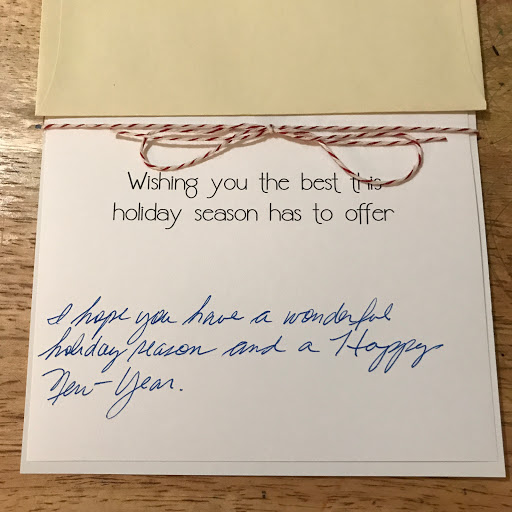 Wishing you the best this
holiday season has to offer
I hope you have a wonderful
holiday season and a Happy
New-Year.